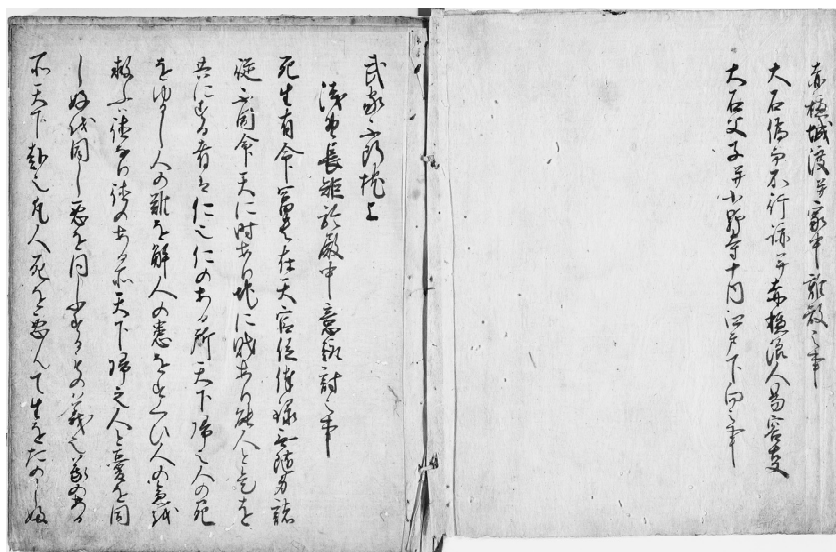 赤穂城渡并家中離散之事
大石偽而不行跡并赤穂浪人易容
大石父子并小野寺十内江戸下向之事
武家
浅野長矩於殿中意趣討之事
死生有命富貴在天官位俸禄
従不同命天に時あり地に財あり能人と是を
共にする者は仁也仁のある所天下帰之人の死
をゆるし人の難を解人の患をすくひ人の急を
救ふは徳也徳のある所天下帰之人と憂を同
し好を同し悪を同しふするもの義也義のある
所天下赴之凡人死を悪んて生をたのしみ